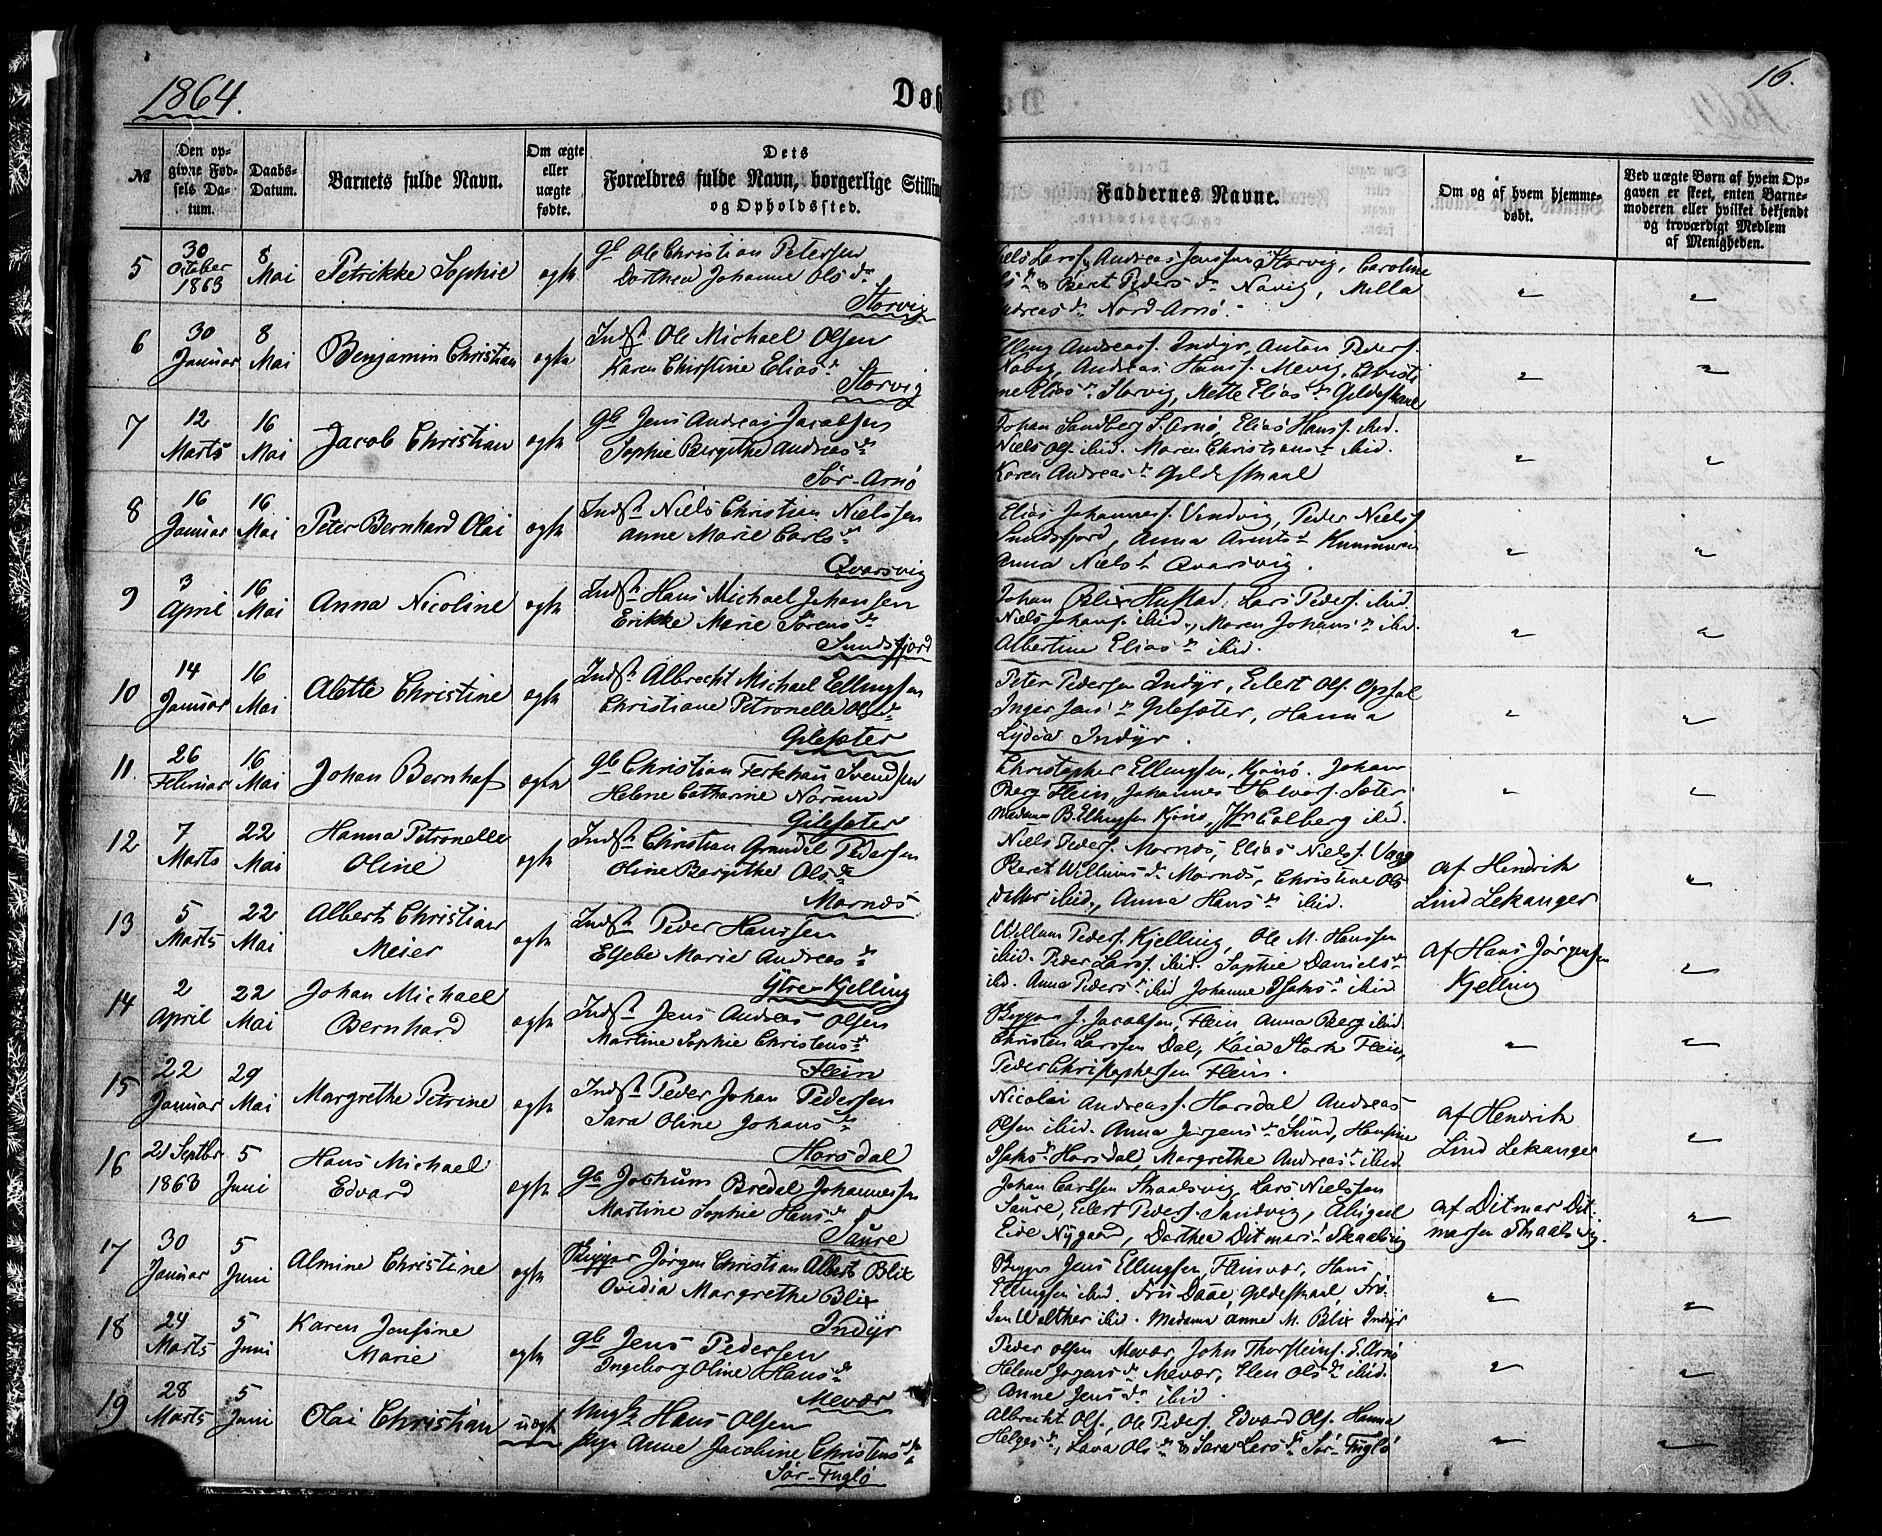 1864.
Døb
16.
№
Den opgivne Fødsels Datum.
Daabs-Datum.
Barnets fulde Navn.
Om ægte eller uægte fødte.
Dets Forældres fulde Navn, borgerlige Stilling og Opholdssted.
Faddernes Navne.
Om og af hvem hjemmedøbt.
Ved uægte Børn af hvem Opgaven er skeet, enten Barnemoderen eller hvilket bekjendt og troværdigt Medlem af Menigheden.
5
30 October 1863
8 Mai
Petrikke Sophie
ægte
gb Ole Christian Petersen
Dorthea Johanne Olsdr
Storvig
Lars Andreas Jenssen Storvig, Caroline
Beret Pedersdr Navig, Milla
Nord-Arnø.
6
30 Januar
8 Mai
Benjamin Christian
ægte
Indst Ole Michael Olsen
Karen Christine Eliasdr
Storvig
Elling Andreass. Indyr, Anton Peders.
Andreas Hanss. Mevig, Christi
ne Eliasdr Storvig, Mette Eliasdr Gildeskaal
7
12 Marts
16 Mai
Jacob Christian
ægte
gb Jens Andreas Jacobsen
Sophie Bergithe Andreasdr
Sør-Arnø
Johan Sandberg S. Arnø, Elias Hanss. ibid.
Niels Ols. ibid. Maren Christiansdr ibid.
Karen Andreasdr Gildeskaal
8
16 Januar
16 Mai
Peter Bernhard Olai
ægte
Indst Niels Christian Nielssen
Anne Marie Carlsdr
Qvarsvig
Elias Johanness. Vindvig, Peder Niels.
Sundsfjord, Anna
Anna Nielsdr Qvarsvig.
9
3 April
16 Mai
Anna Nicoline
ægte
Indst Hans Michael Johansen
Erikke Marie Sørensdr
Sundsfjord
Johan Blix Hustad, Lars Peders. ibid.
Niels Johans. ibid., Maren Johansdr ibid.
Albertine Eliasdr ibid.
10
14 Januar
16 Mai
Alette Christine
ægte
Indst Albrecht Michael Ellingsen
Christiane Petronelle Olsdr
Gilesæter
Peter Pedersen Indyr, Eilert Ols. Opsal
Inger Jensdr Gilesæter, Hanna
Lydia Indyr.
11.
26 Februar
16 Mai
Johan Bernhof
ægte
gb Christian Svendsen
Helene Catharine Norum
Gilesæter
Christopher Ellingsen, Kjønø. Johan
Berg Flein, Johannes Halvors. Sæter.
Madame B. Ellingsen Kjønø, Jfr Colberg ibid.
12
7 Marts
22 Mai
Hanna Petronelle
Oline
ægte
Indst Christian Grundel Pedersen
Oline Bergithe Olsdr
Mornes
Niels Peders. Mornes, Elias Niels. Vaag
Beret Willumsdr Mornes, Christine Ols
datter ibid., Anna Hansdr ibid.
af Hendrik
Lind Lekanger
13
5 Marts
22 Mai
Albert Christian
Meier
ægte
Indst Peder Hanssen
Elsebe Marie Andreasdr
Ytre-Kjelling
Willum Peders. Kjelling, Ole M. Hanssen
ibid. Peder Larss. ibid. Sophie Danielsdr
ibid. Anna Pedersdr ibid Johanne Isaksdr ibid
af Hans Jørgensen
Kjelling
14
2 April
22 Mai
Johan Michael
Bernhard
ægte
Indst Jens Andreas Olsen
Martine Sophie Christensdr
Flein
Skipper J. Jacobsen, Flein, Anna Berg ibid.
Christen Larssen Dal, Kaia Stork Flein,
Peder Christophersen Flein.
15
22 Januar
29 Mai
Margrethe Petrine
ægte
Indst Peder Johan Pedersen
Sara Oline Johansdr
Horsdal
Nicolai Andreass. Horsdal Andreas
Olsen ibid. Anna Jørgensdr Sund, Hansine
Isaksdr Horsdal, Margrethe Andreasdr ibid.
af Hendrik
Lind Lekanger
16
21 Septbr 1863
5 Juni
Hans Michael
Edvard
ægte
gb Jochum Bredal Johannessen
Martine Sophie Hansdr
Saure
Johan Carlsen Skaalsvig, Lars Nielssen
Saure, Eilert Peders. Sandvig, Abigael
Eide Nygaard, Dorthea Ditmarsdr Skaalsvig
af Ditmar Dit-
marsen Skaalsvig.
17
30 Januar
5 Juni
Almine Christine
ægte
Skipper Jørgen Christian Albert Blix
Ovidia Margrethe Blix
Indyr
Skipper Jens Ellingsen, Fleinvær, Hans
Ellingsen ibid. Fru Daae, Gildeskaal, Frø.
Walther ibid. Madame Anne M. Blix Indyr
18
24 Marts
5 Juni
Karen Jensine
Marie
ægte
gb Jens Pedersen
Ingeborg Oline Hansdr
Mevær
Peder Olsen Mevær, John Thorsteins. S. Arnø
Helene Jørgensdr Mevær, Elen Olsdr ibid.
Anne Jensdr ibid.
19
28 Marts
5 Juni
Olai Christian
uægte
Ungk. Hans Olsen
Pige Anne Jacobine Christensdr
Sør-Fuglø
Albrecht Ols., Ole Peders. Edvard Ols. Hanna
Helgesdr, Lava Olsdr & Sara Larsdr Sør-Fuglø